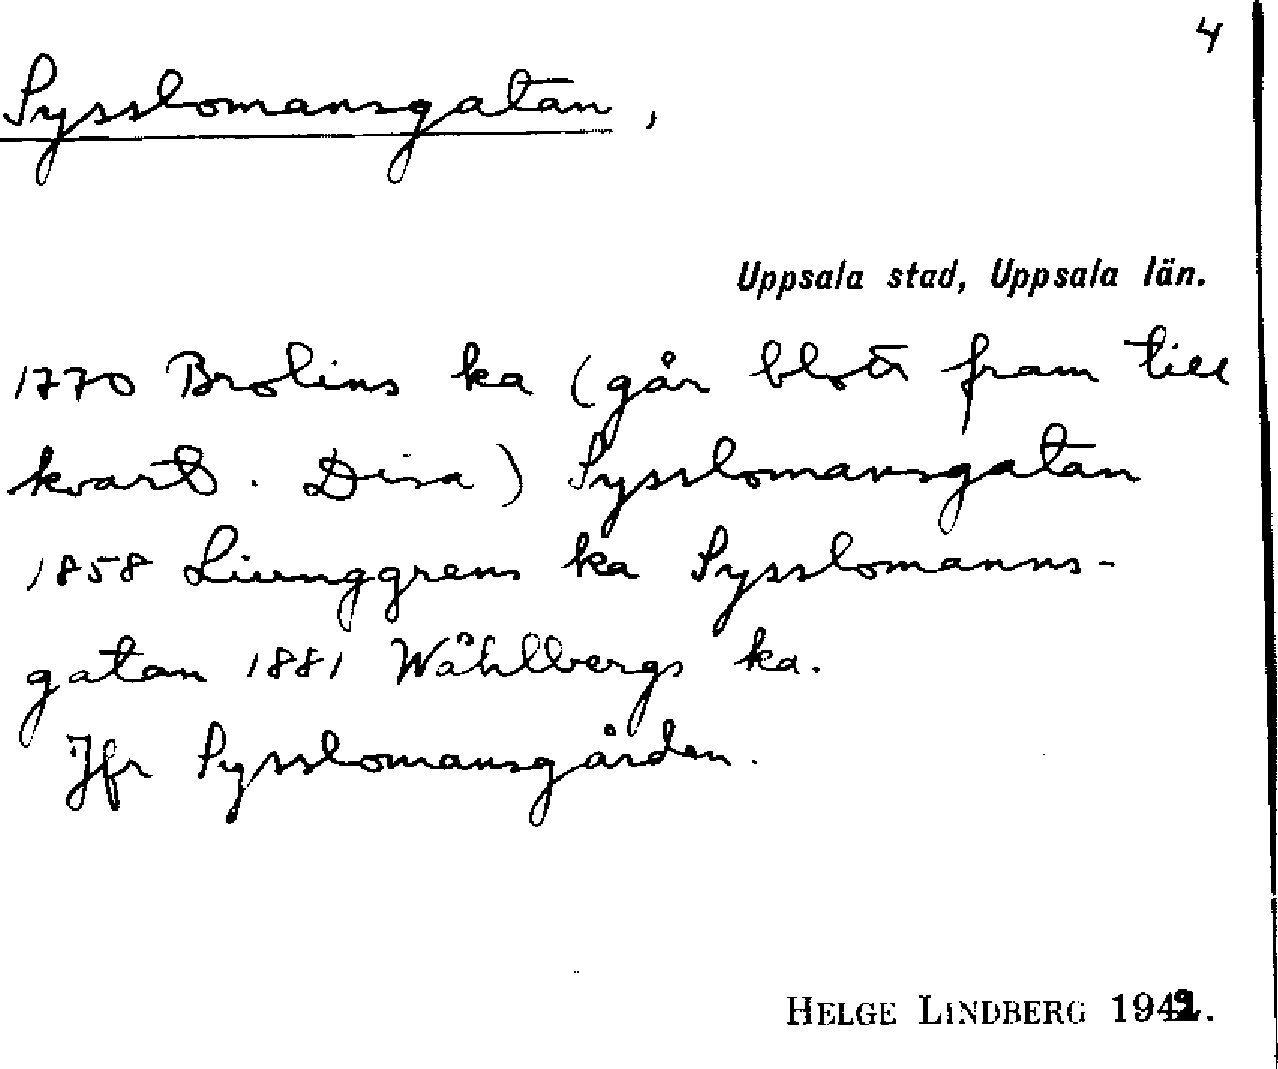 4
Sysslomansgatan,
Uppsala stad, Uppsala län.
1770 Brolins ka (går blott fram till
kvart. Disa) Sysslomansgatan
1858 Liunggrens ka Sysslomanns-
gatan 1881 Wåhlbergs ka.
Jfr Sysslomansgården.
HELGE LINDBERG